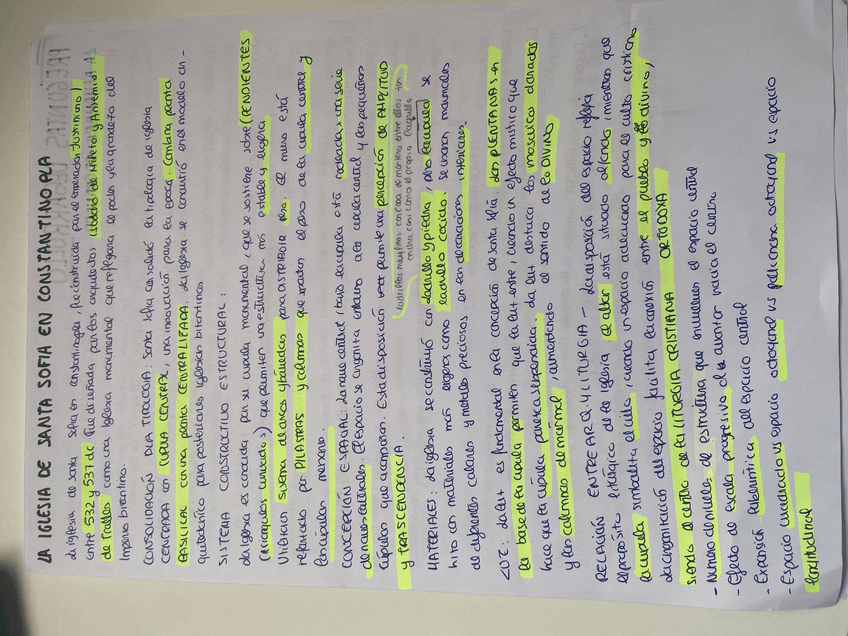 LA IGLESIA DE SANTA SOFIA EN CONSTANTINOPLA
La iglesia de santa sofia en constantinopla, fue construida por el emperador Justiniano I
entre 532 y 537 dc. Fue diseñada por los arquitectos Isidoro de Mileto y Antemio
de Tralles como una iglesia monumental que reflejara el poder y la grandeza del
imperio bizantino.
CONSOLIDACIÓN DE LA TIPOLOGIA: santa sofia consolidó la tipologia de iglesia
CENTRADA con CUPULA CENTRAL, una innovación para la epoca. Combina planta
BASILICAL con una planta CENTRALIZADA. La iglesia se convirtió en el modelo
arquitectonico para posteriores iglesias bizantinas.
SISTEMA CONSTRUCTIVO ESTRUCTURAL:
La iglesia es conocida por su cupula monumental, que se sostiene sobre (PENDIENTES
(triangulos curvados) que permiten una estructura más estable y ligera.
Utilizaron sistema de arcos y bóvedas para DISTRIBUIR peso. El muro está
reforzado por PILASTRAS y columnas que soportan el peso de la cupula central y
las cupulas menores.
CONCEPCIÓN ESPACIAL: La nave central, bajo la cupula está rodeada x una serie
de naves laterales. El espacio se organiza entorno a la cupula central y las pequeñas
cupulas que acompañan. Esta disposición permite una percepción de AMPLITUD
y TRASCENDENCIA.
ladrillos muy finos con capa de mortero entre ellos tan
ancha casi como el propio ladrillo
MATERIALES: La iglesia se construyó con ladrillo y piedra, pero la cupula se
hizo con materiales más ligeros como ladrillo cocido. Se usaron marmoles
de diferentes colores y metales preciosos en las decoraciones interiores.
LUZ: La luz es fundamental en la concepción de santa sofia. Las VENTANAS en
la base de la cupula permiten que la luz entre, creando un efecto mistico que
hace que la cúpula parezca suspendida. La luz destaca los mosaicos dorados
y las columnas de marmol, aumentando el sentido de lo DIVINO
RELACIÓN ENTRE ARQ Y LITURGIA - La disposición del espacio refleja
el propósito litúrgico de la iglesia. El altar está situado al fondo, mientras que
la cupula simboliza el cielo, creando un espacio adecuado para el culto cristiano
La organización del espacio facilita la conexión entre el pueblo y lo divino,
siendo el centro de la LITURGIA CRISTIANA ORTODOXA
- Numero de niveles de estructura que envuelven el espacio central
- Efecto de escala progresivo al avanzar hacia el centro
- Expansión del espacio central
- Espacio cuadrado vs espacio octogonal vs espacio
longitudinal